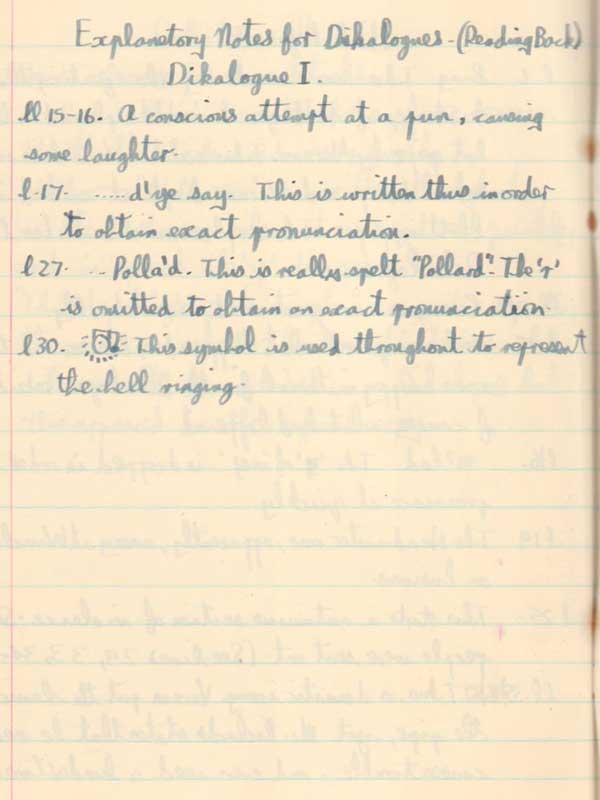 Explanetory Notes for Dikalogues - (Reading Back)
Dikalogue I.
ll 15-16. A conscious attempt at a pun, causing
some laughter.
l.17. ..... d'ye say. This is written thus in order
to obtain exact pronunciation.
l 27. ... Polla'd. This is really spelt "Pollard". The 'r'
is omitted to obtain an exact pronunciation.
l 30. This symbol is used throughout to represent
the bell ringing.